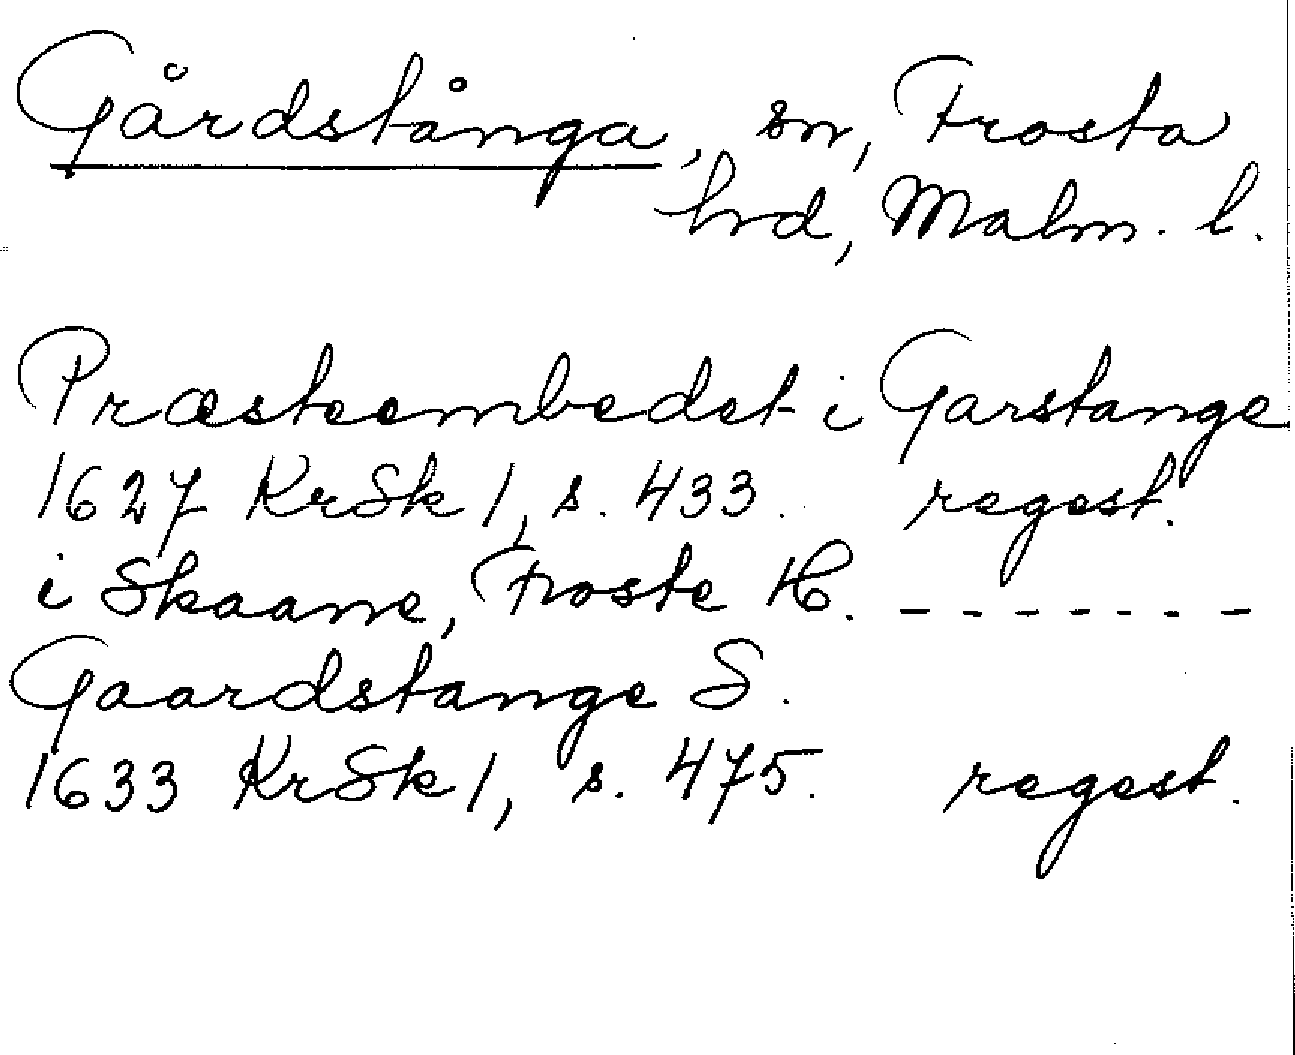 Gårdstånga, sn, Frosta
hrd, Malm. l.
Præsteembedet i Garstange
1627 KrSk 1, s. 433. regest.
i Skaane, Froste H. - - - - - - -
Gaardstange S.
1633 KrSk 1, s. 475. regest.